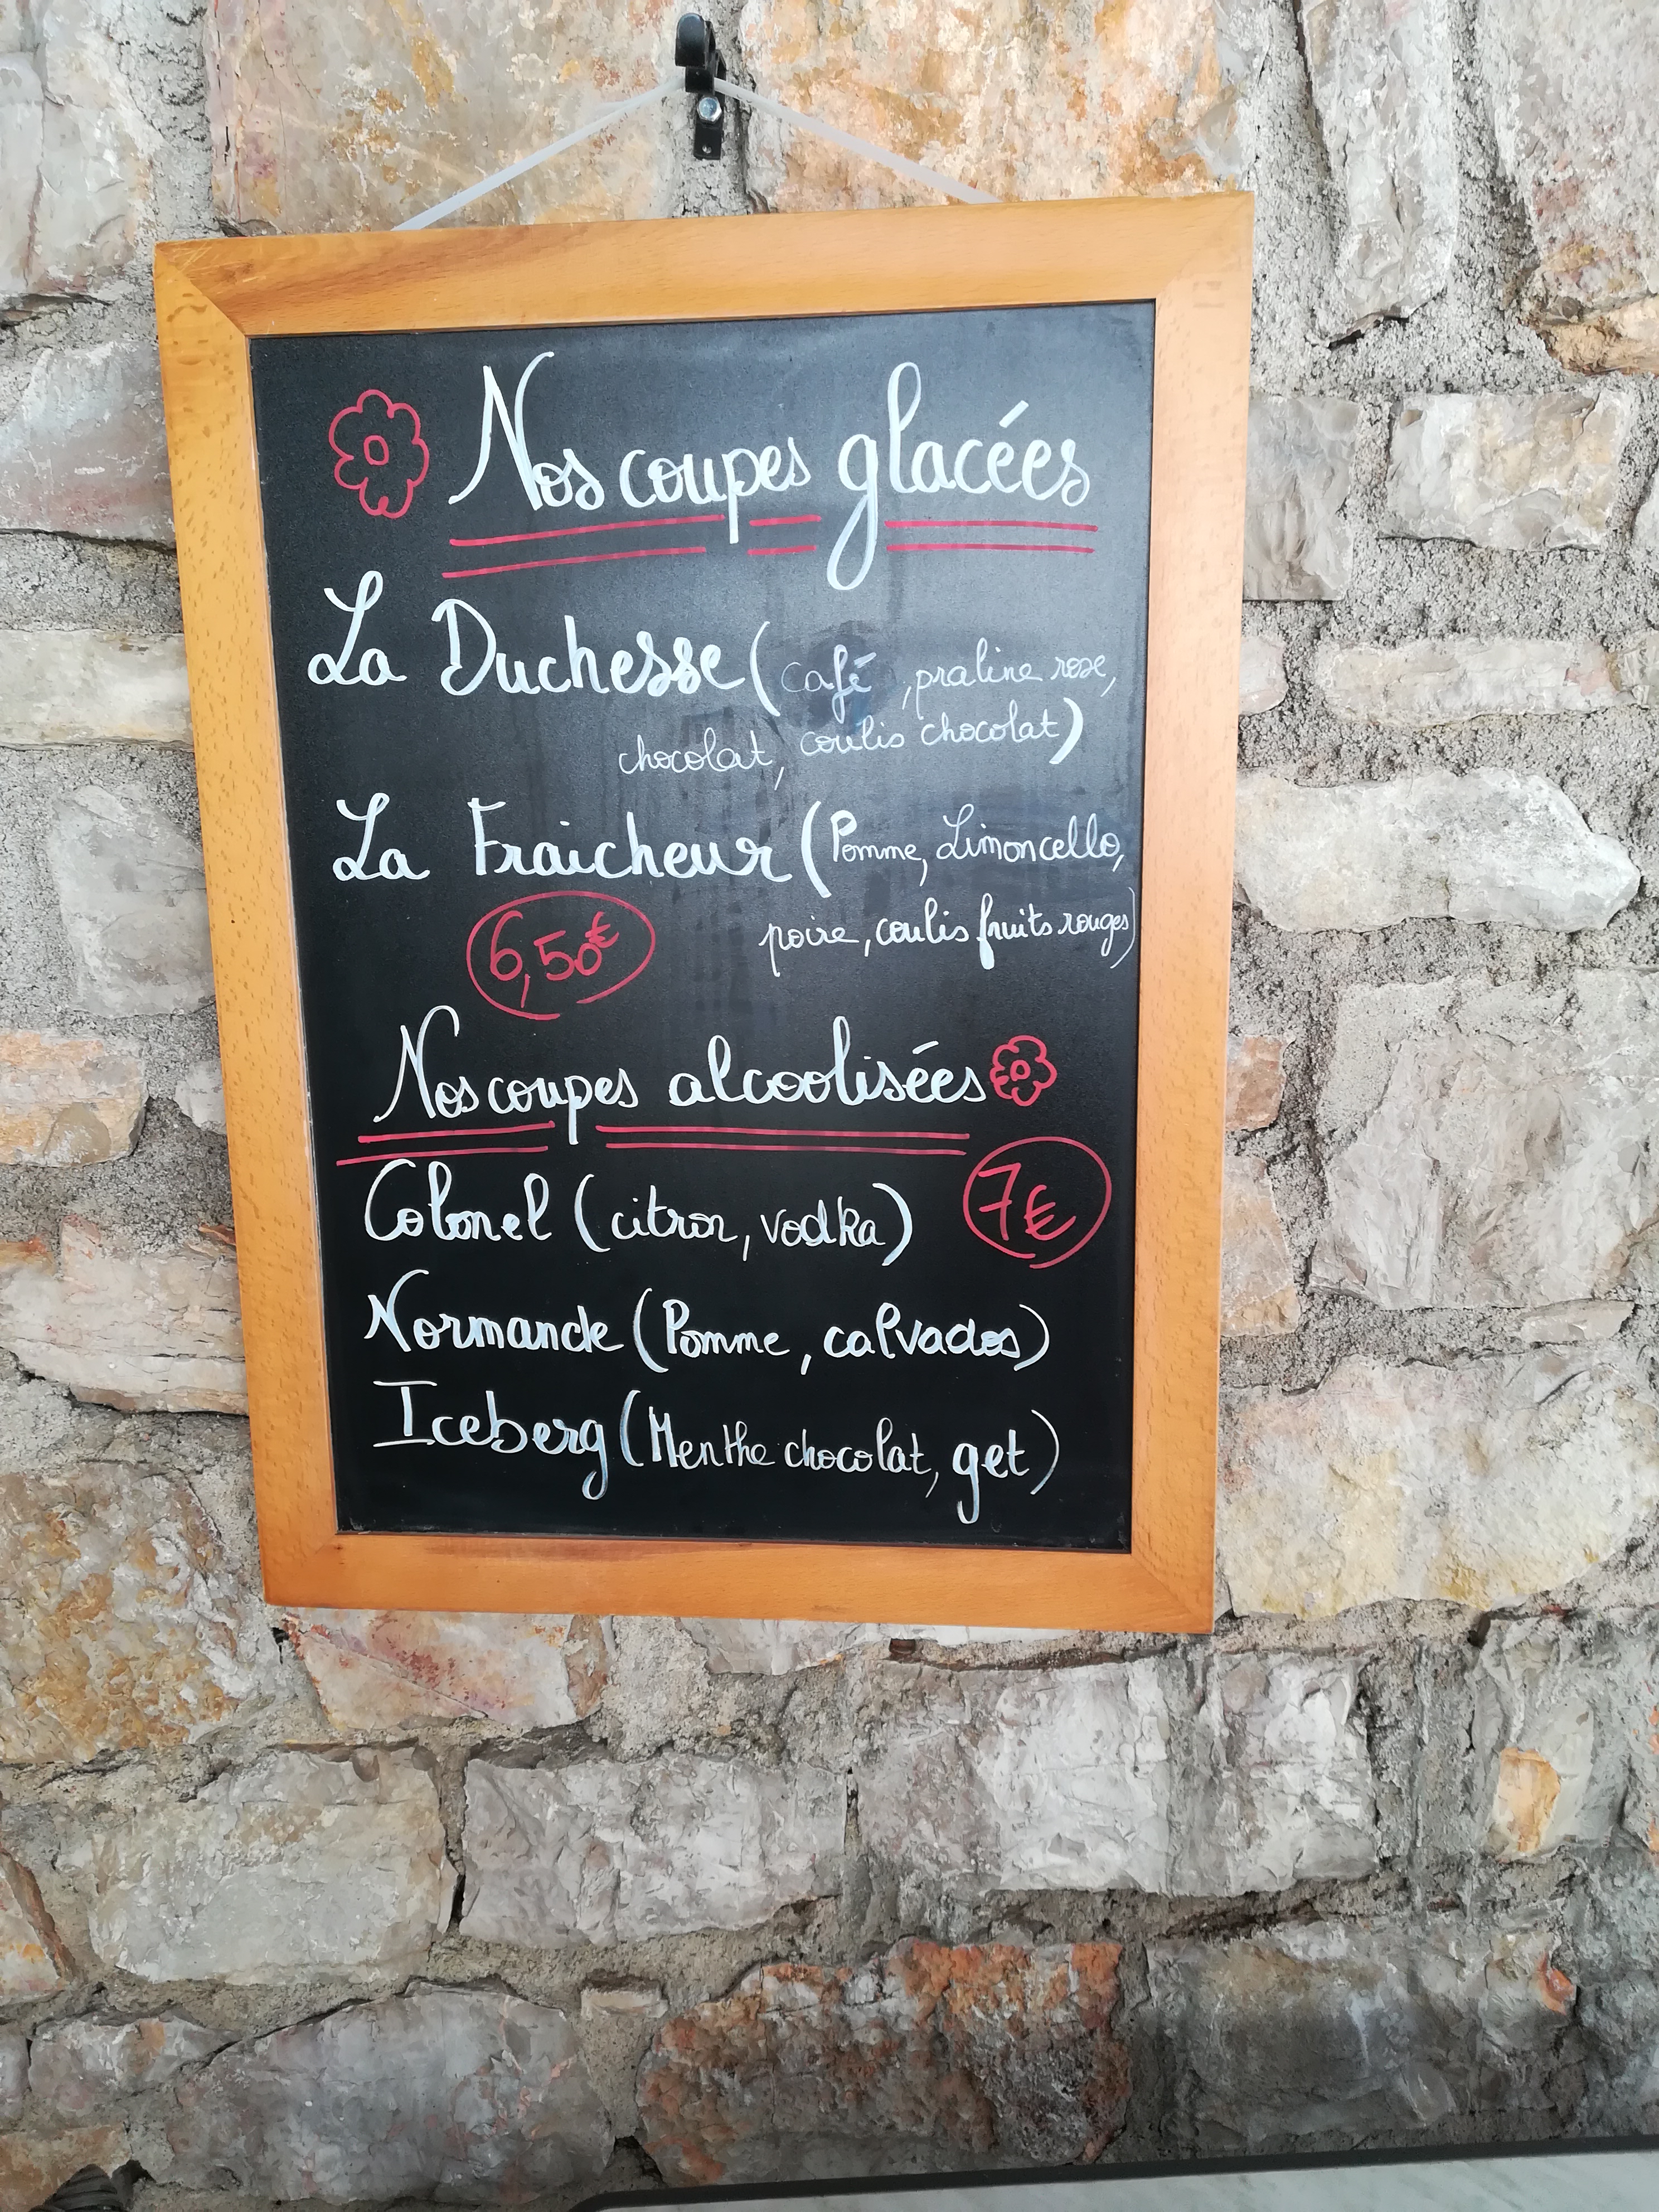 Nos coupes glacées
La Duchesse (café, praline rose,
chocolat, coulis chocolat)
La Fraicheur (Pomme, Limoncello,
poire, coulis fruits rouges)
6,50€
Nos coupes alcoolisées
7€
Colonel (citron, vodka)
Normande (Pomme, calvados)
Iceberg (Menthe chocolat, get)